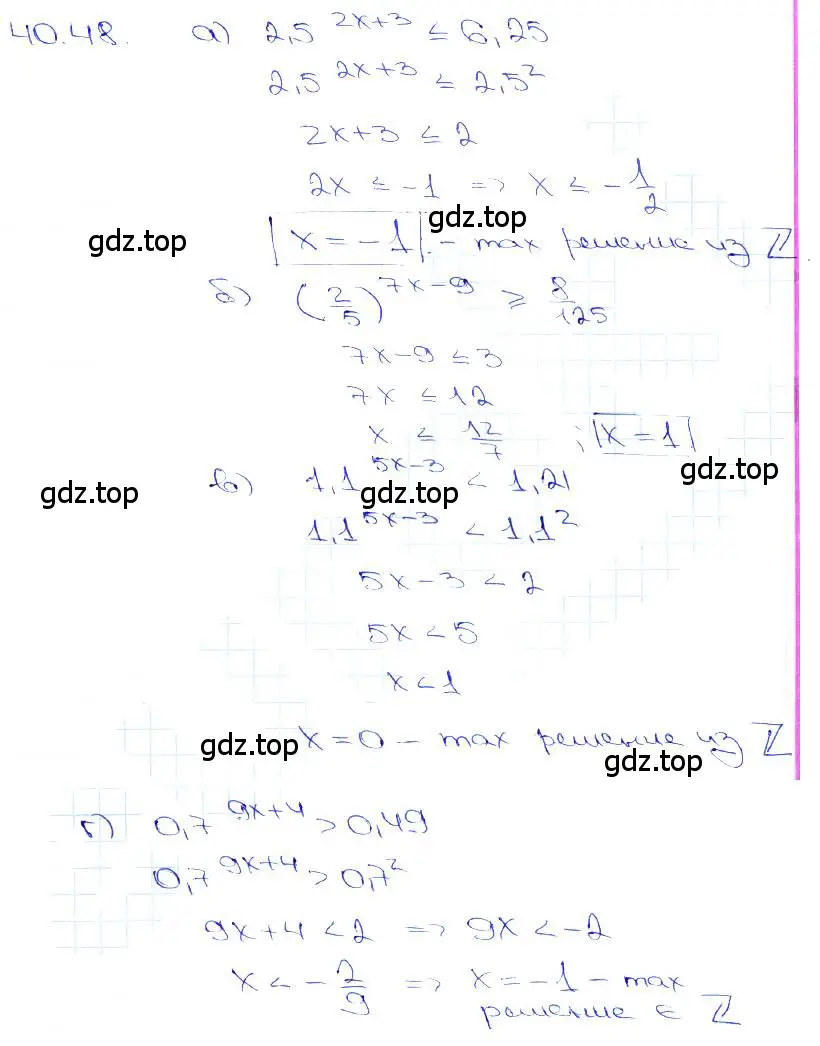 40.48. а) 2,5^{2x+3} ≤ 6,25
2,5^{2x+3} ≤ 2,5²
2x+3 ≤ 2
2x ≤ -1 => x ≤ -1/2
gdz.top
gdz.top
|x = -1|. - max решение из ℤ
б) (2/5)^{7x-9} ≥ 8/125
7x-9 ≤ 3
7x ≤ 12
x ≤ 12/7 ; |x = 1|
gdz.top
в) 1,1^{5x-3} < 1,21
gdz.top
gdz.top
1,1^{5x-3} < 1,1²
5x-3 < 2
5x < 5
x < 1
x = 0 - max решение из ℤ
gdz.top
gdz.top
г) 0,7^{9x+4} > 0,49
0,7^{9x+4} > 0,7²
9x+4 < 2 => 9x < -2
x < -2/9 => x = -1 - max
решение ∈ ℤ